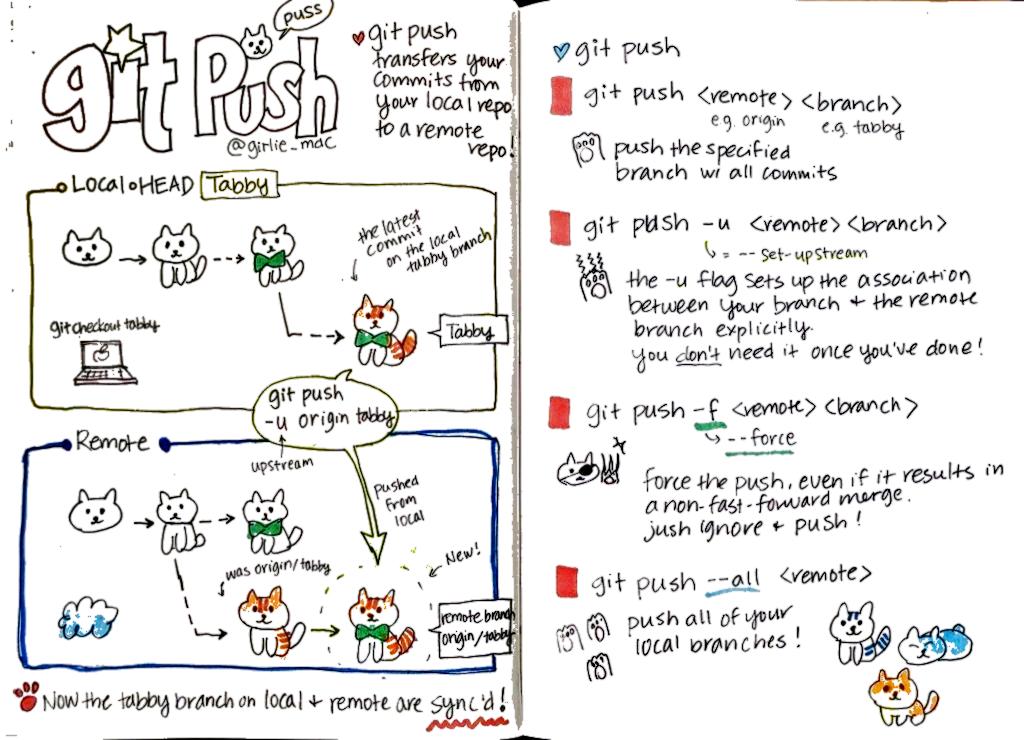 git Push
puss
@girlie_mac
git push
transfers your
commits from
your local repo
to a remote
repo!
Local HEAD Tabby
the latest
commit
on the local
tabby branch
git checkout tabby
Tabby
git push
-u origin tabby
upstream
Remote
pushed
from
local
was origin/tabby
New!
remote branch
origin/tabby
Now the tabby branch on local + remote are sync'd!
git push
git push <remote> <branch>
e.g. origin e.g. tabby
push the specified
branch w/ all commits
git push -u <remote> <branch>
= --set-upstream
the -u flag sets up the association
between your branch + the remote
branch explicitly.
you don't need it once you've done!
git push -f <remote> <branch>
--force
force the push, even if it results in
a non-fast-forward merge.
just ignore + push!
git push --all <remote>
push all of your
local branches!